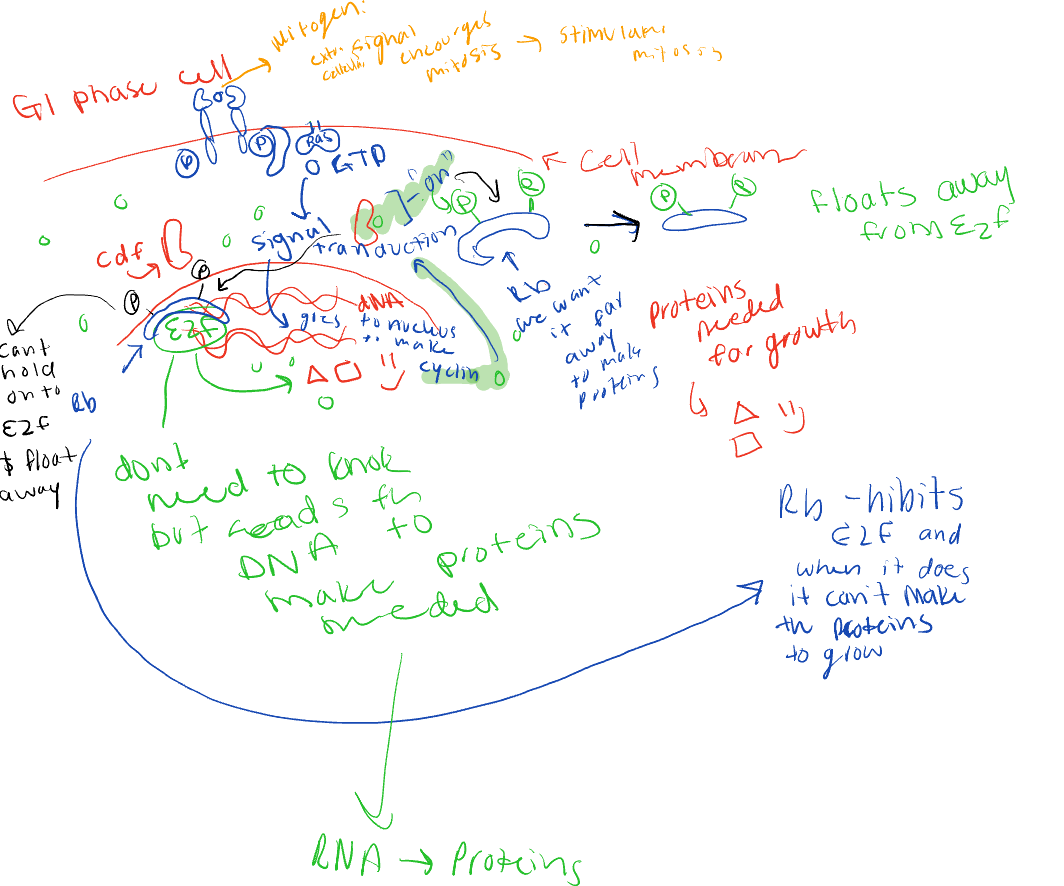 Mitogen:
extra signal encourges
cellular mitosis
→ stimulate
mitosis
G1 phase cell
P
P
Ras
GTP
← Cell
membrane
"on"
P
P
P
floats away
from E2F
signal
tranduction
cdf
P
P
E2F
dNA
goes to nucleus
to make
cyclin
Rb
we want
it far
away
to make
proteins
proteins
needed
for growth
Cant
hold
onto
E2F
& float
away
Rb
dont
need to know
but reads th
DNA to
make proteins
needed
Rb -hibits
E2F and
when it does
it can't make
th proteins
to grow
RNA → Proteins